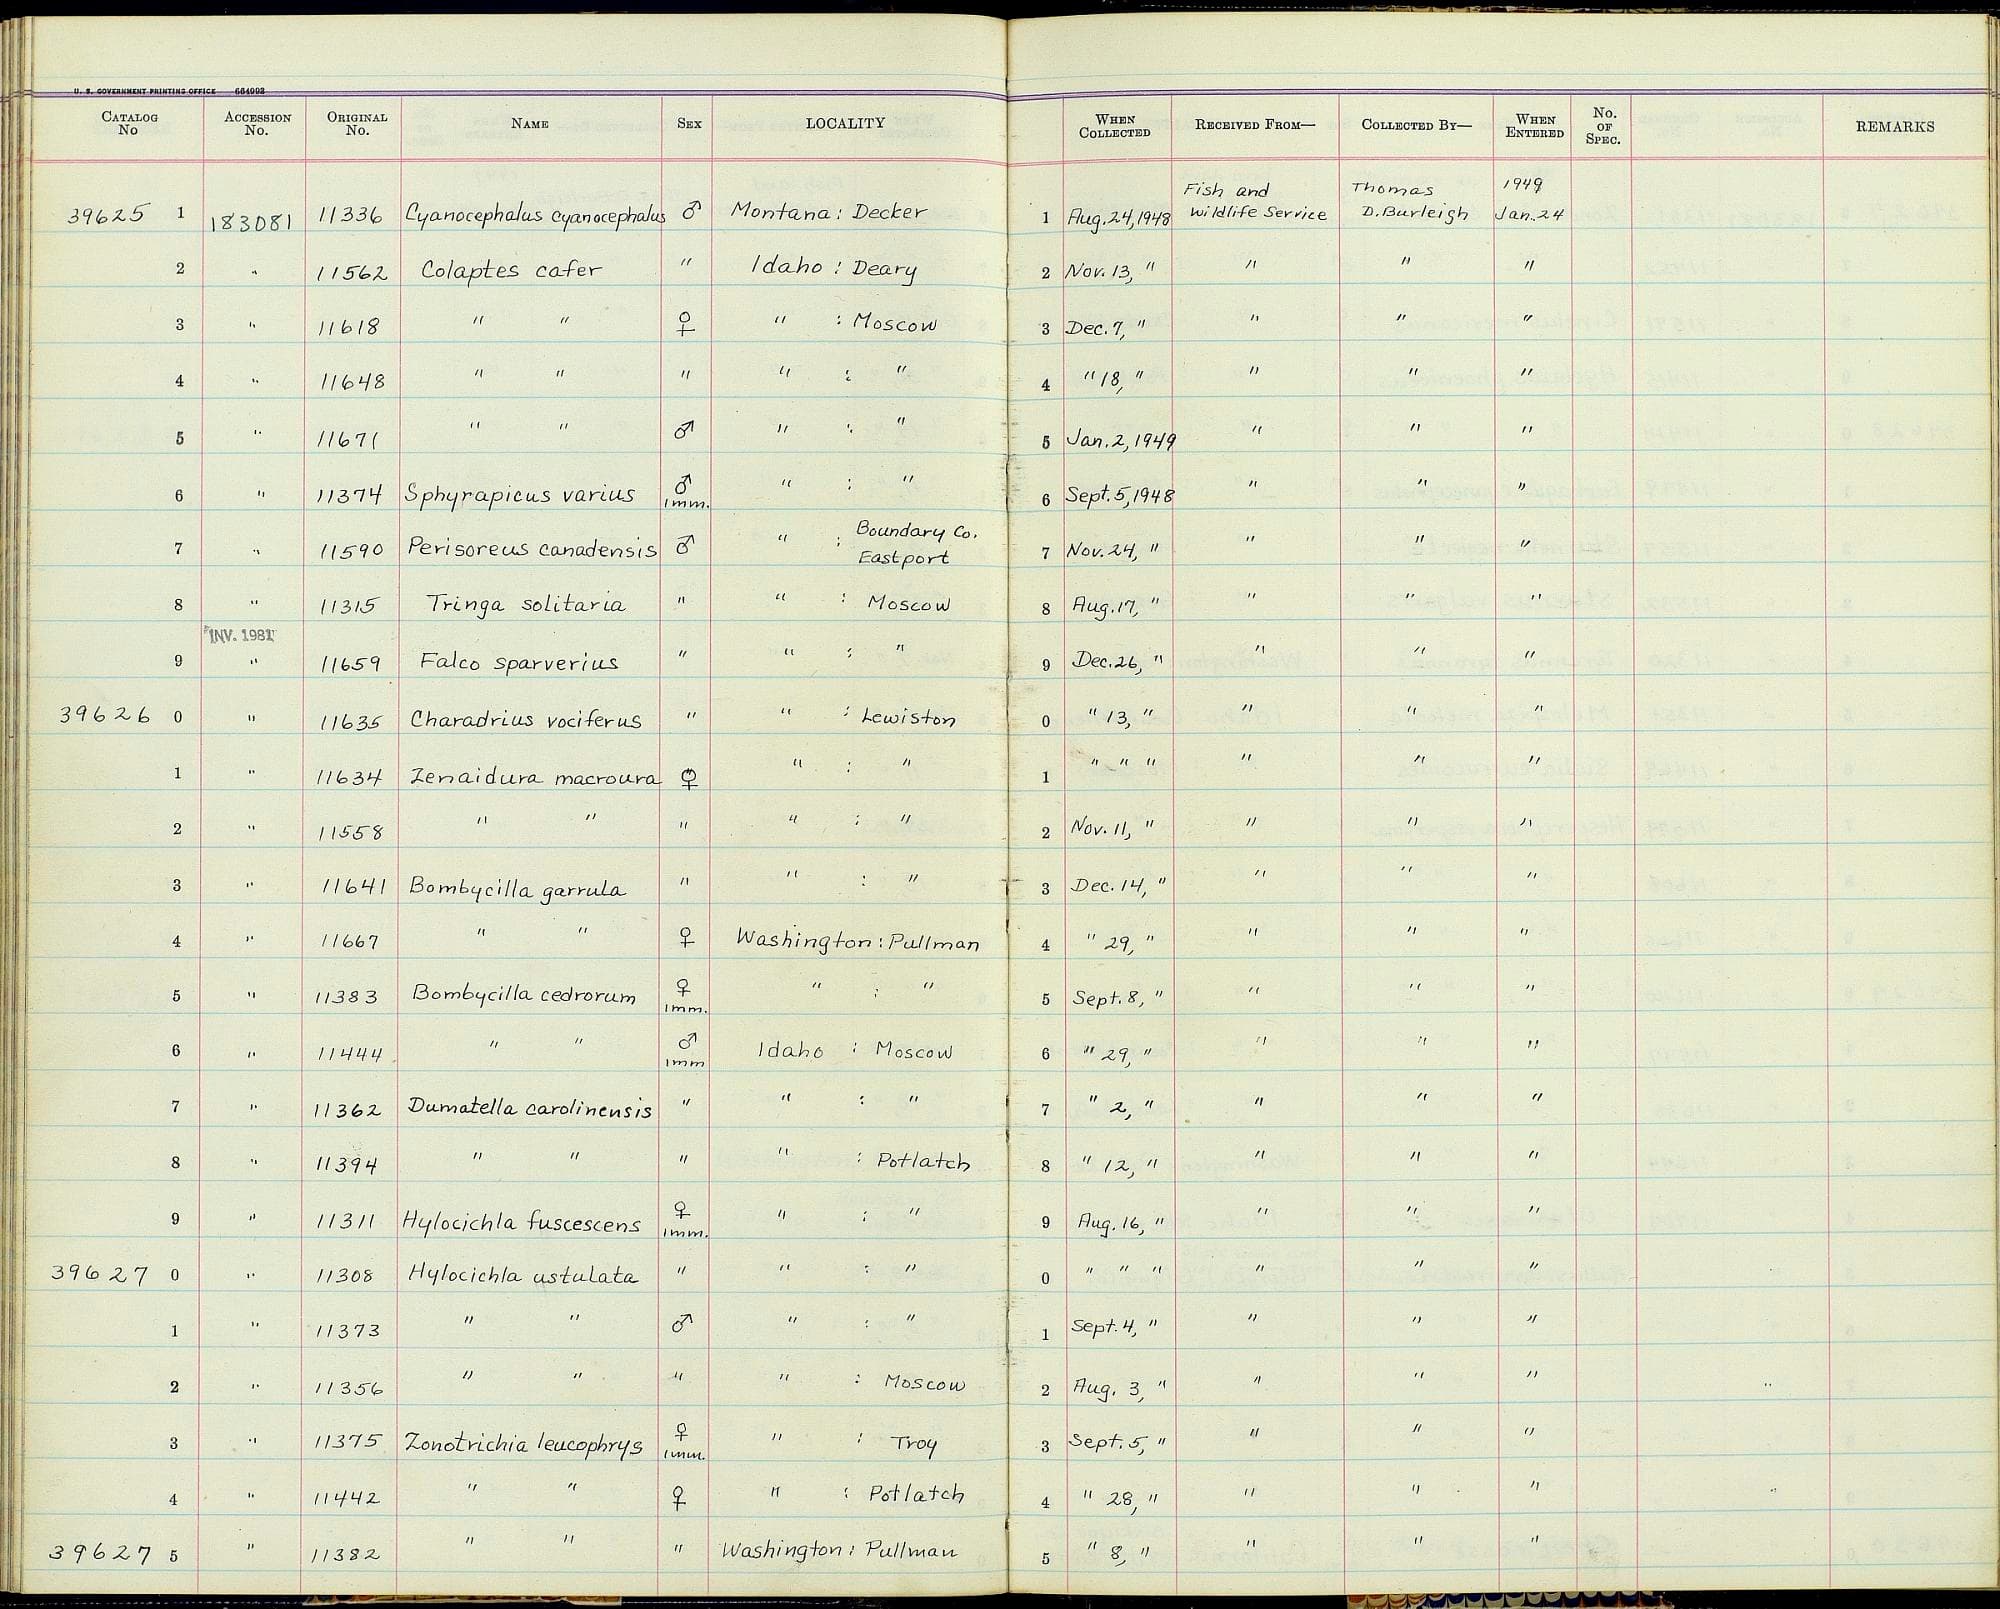 U. S. GOVERNMENT PRINTING OFFICE 664992
CATALOG No ACCESSION No. ORIGINAL No. NAME SEX LOCALITY WHEN COLLECTED RECEIVED FROM— COLLECTED BY— WHEN ENTERED No. OF SPEC. REMARKS
39625 1 183081 11336 Cyanocephalus cyanocephalus ♂ Montana : Decker 1 Aug. 24, 1948 Fish and Wildlife Service Thomas D. Burleigh 1949 Jan. 24
2 " 11562 Colaptes cafer " Idaho : Deary 2 Nov. 13, " " " "
3 " 11618 " " ♀ " : Moscow 3 Dec. 7, " " " "
4 " 11648 " " " " : " 4 " 18, " " " "
5 " 11671 " " ♂ " : " 5 Jan. 2, 1949 " " "
6 " 11374 Sphyrapicus varius ♂ imm. " : " 6 Sept. 5, 1948 " " "
7 " 11590 Perisoreus canadensis ♂ " : Boundary Co. Eastport 7 Nov. 24, " " " "
8 " 11315 Tringa solitaria " " : Moscow 8 Aug. 17, " " " "
INV. 1981
9 " 11659 Falco sparverius " " : " 9 Dec. 26, " " " "
39626 0 " 11635 Charadrius vociferus " " : Lewiston 0 " 13, " " " "
1 " 11634 Zenaidura macroura ♀ " : " 1 " " " " " "
2 " 11558 " " " " : " 2 Nov. 11, " " " "
3 " 11641 Bombycilla garrula " " : " 3 Dec. 14, " " " "
4 " 11667 " " ♀ Washington : Pullman 4 " 29, " " " "
5 " 11383 Bombycilla cedrorum ♀ imm. " : " 5 Sept. 8, " " " "
6 " 11444 " " ♂ imm Idaho : Moscow 6 " 29, " " " "
7 " 11362 Dumatella carolinensis " " : " 7 " 2, " " " "
8 " 11394 " " " " : Potlatch 8 " 12, " " " "
9 " 11311 Hylocichla fuscescens ♀ imm. " : " 9 Aug. 16, " " " "
39627 0 " 11308 Hylocichla ustulata " " : " 0 " " " " " "
1 " 11373 " " ♂ " : " 1 Sept. 4, " " " "
2 " 11356 " " " " : Moscow 2 Aug. 3, " " " "
3 " 11375 Zonotrichia leucophrys ♀ imm. " : Troy 3 Sept. 5, " " " "
4 " 11442 " " ♀ " : Potlatch 4 " 28, " " " "
39627 5 " 11382 " " " Washington : Pullman 5 " 8, " " " "